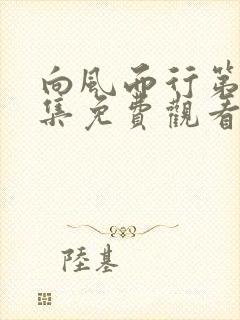 向風而行第
集免費觀看
陸基